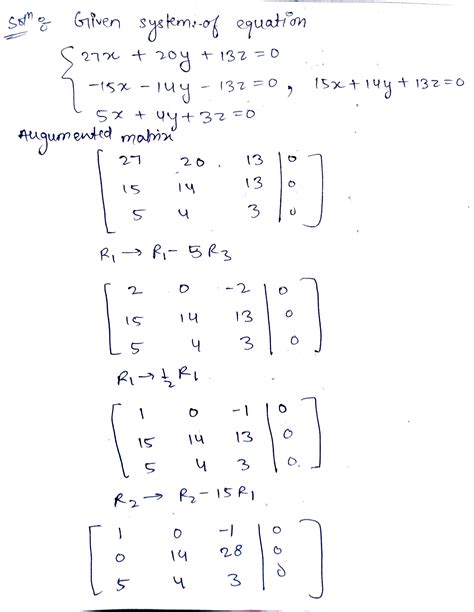 Solⁿ : Given system of equation
27x + 20y + 13z = 0
-15x - 14y - 13z = 0, 15x + 14y + 13z = 0
5x + 4y + 3z = 0
Augumented matrix
27 20 13 | 0
15 14 13 | 0
5 4 3 | 0
R₁ → R₁ - 5R₃
2 0 -2 | 0
15 14 13 | 0
5 4 3 | 0
R₁ → ½ R₁
1 0 -1 | 0
15 14 13 | 0
5 4 3 | 0.
R₂ → R₂ - 15R₁
1 0 -1 | 0
0 14 28 | 0
5 4 3 | 0